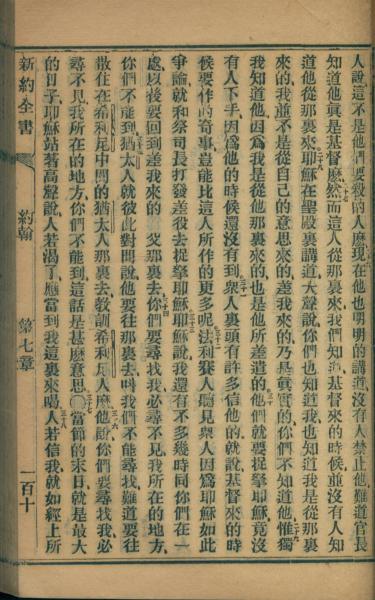 人說這不是他們要殺的人麽現在他也明明的講道沒有人禁止他難道官長
知道他眞是基督麽然而這人從那裏來我們知道基督來的時候並沒有人知
道他從那裏來耶穌在聖殿裏講道大聲說你們也知道我也知道我是從那裏
來的我並不是從自己的意思來的差我來的乃是眞實的你們不知道他惟獨
我知道他因爲我是從他那裏來的也是他所差遣的他們就要捉拏耶穌竟沒
有人下手因爲他的時候還沒有到衆人裏頭有許多信他的就說基督來的時
候要作的奇事豈能比這人所作的更多呢法利賽人聽見衆人因爲耶穌如此
爭論就和祭司長打發差役去捉拏耶穌耶穌說我還有不多幾時同你們在一
處以後要回到差我來的 父那裏去你們要尋找我必尋不見我所在的地方
你們不能到猶太人就彼此對問說他要往那裏去呌我們不能尋找難道要往
散住在希利尼中間的猶太人那裏去敎訓希利尼人麽他說你們要尋找我必
尋不見我所在的地方你們不能到這話是甚麽意思〇當節的末日就是最大
的日子耶穌站著高聲說人若渴了應當到我這裏來喝人若信我就如經上所
新約全書 約翰 第七章 一百十